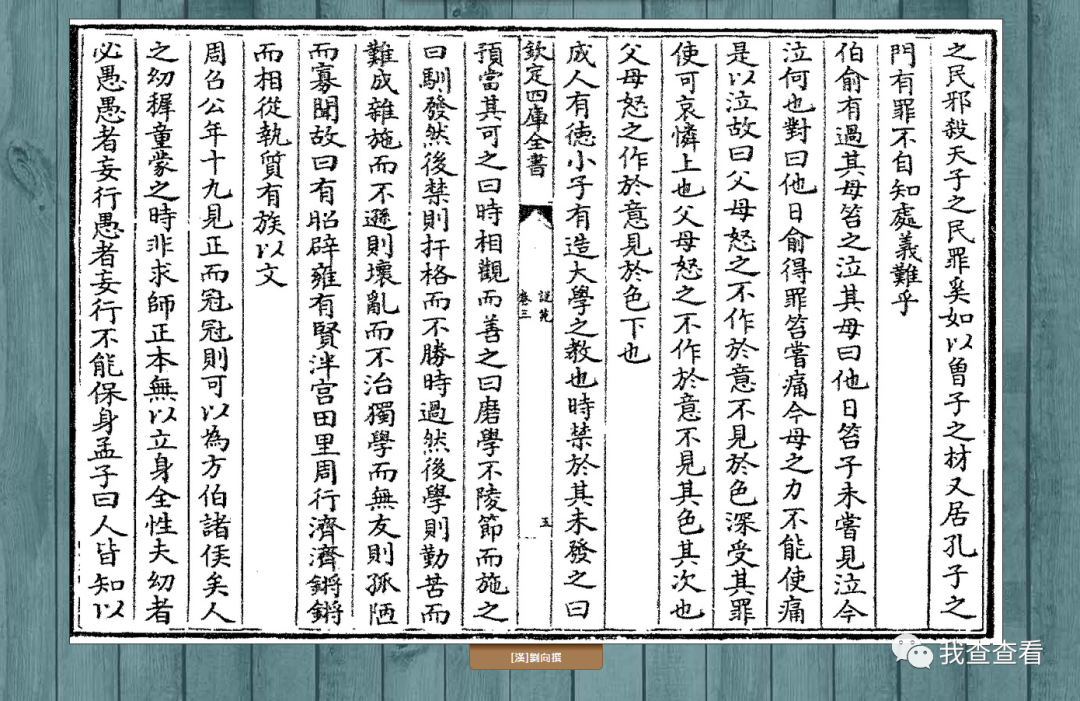 之民邪殺天子之民罪奚如以曽子之材又居孔子之
門有罪不自知處義難乎
伯俞有過其母笞之泣其母曰他日笞子未嘗見泣今
泣何也對曰他日俞得罪笞嘗痛今母之力不能使痛
是以泣故曰父母怒之不作於意不見於色深受其罪
使可哀憐上也父母怒之不作於意不見其色其次也
父母怒之作於意見於色下也
成人有徳小子有造大學之教也時禁於其未發之曰
欽定四庫全書
說苑
卷三
五
預當其可之曰時相觀而善之曰磨學不陵節而施之
曰馴發然後禁則扞格而不勝時過然後學則勤苦而
難成雜施而不遜則壞亂而不治獨學而無友則孤陋
而寡聞故曰有昭辟雍有賢泮宫田里周行濟濟鏘鏘
而相從執質有族以文
周召公年十九見正而冠冠則可以為方伯諸侯矣人
之幼穉童蒙之時非求師正本無以立身全性夫幼者
必愚愚者妄行愚者妄行不能保身孟子曰人皆知以
[漢]劉向撰
我查查看